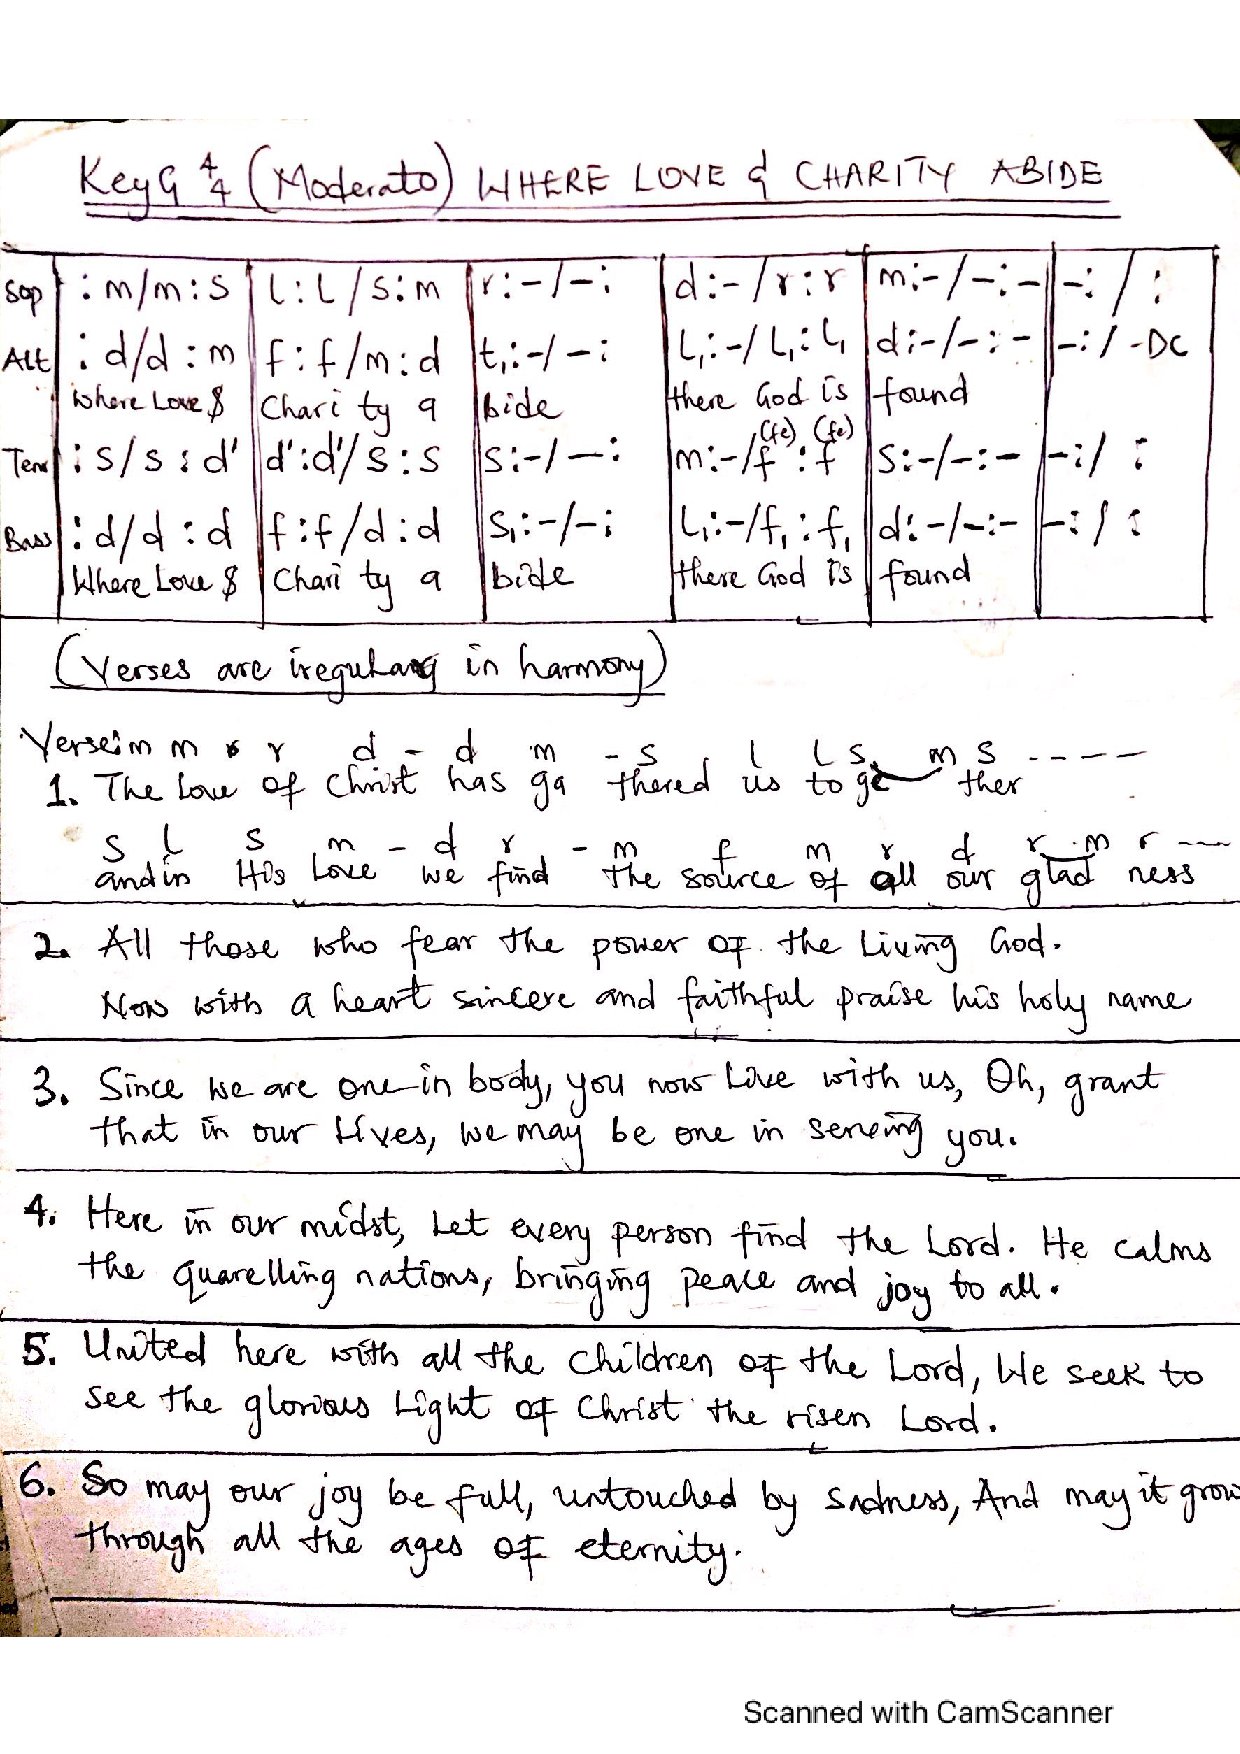 Key G 4/4 (Moderato) WHERE LOVE & CHARITY ABIDE
Sop : m/m : s | l : l / s : m | r : - / - : | d : - / r : r | m : - / - : - | - : / :
Alt : d/d : m | f : f / m : d | t₁ : - / - : | l₁ : - / l₁ : l₁ | d : - / - : - | - : / - DC
Where Love $ | Chari ty a | bide | there God is | found
(fe) (fe)
Ten : s / s : d' | d' : d' / s : s | s : - / - : | m : - / f : f | s : - / - : - | - : / :
Bass : d / d : d | f : f / d : d | s₁ : - / - : | l₁ : - / f₁ : f₁ | d : - / - : - | - : / :
Where Love $ | Chari ty a | bide | there God is | found
(Verses are iregular in harmony)
Verse: m m r r d - d m - s l l s m s - - - -
1. The Love of Christ has ga thered us to ge ther
s l s m - d r - m f m r d r m r - - -
and in His Love we find the source of all our glad ness
2. All those who fear the power of the Living God.
Now with a heart sincere and faithful praise his holy name
3. Since we are one in body, you now Live with us, Oh, grant
that in our Lives, we may be one in serveing you.
4. Here in our midst, Let every person find the Lord. He calms
the quarelling nations, bringing peace and joy to all.
5. United here with all the Children of the Lord, We seek to
see the glorious Light of Christ the risen Lord.
6. So may our joy be full, untouched by sadness, And may it grow
through all the ages of eternity.
Scanned with CamScanner